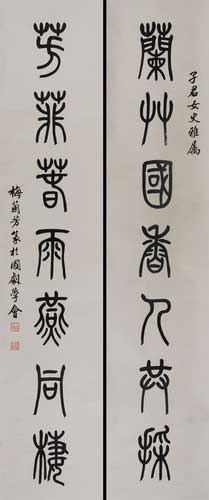 子君女史雅屬
蘭艸國香人共採
芳菲春雨燕同棲
梅蘭芳篆於國劇學會